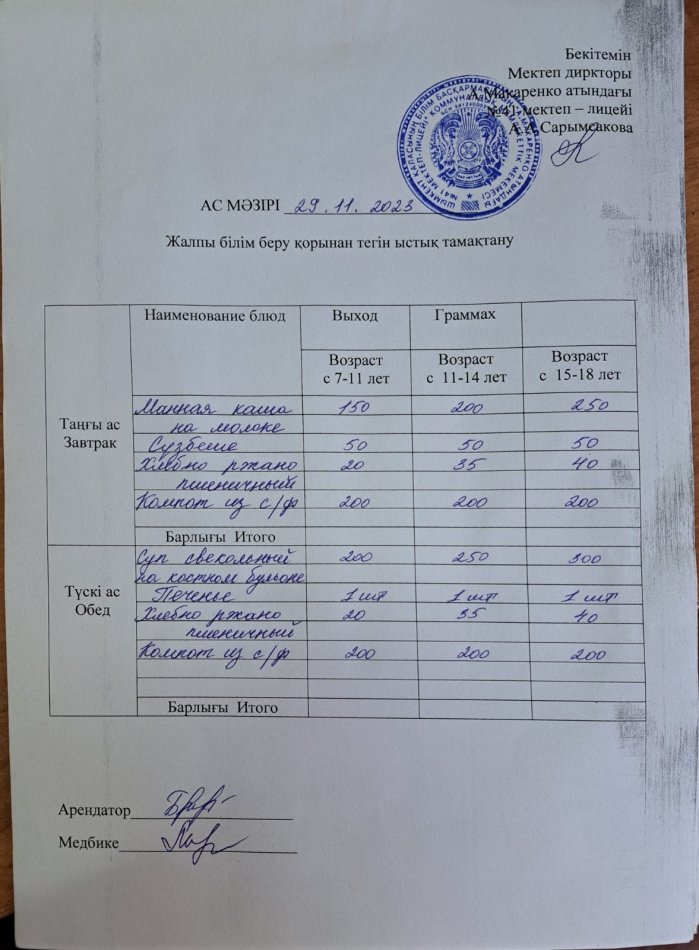 Бекітемін
Мектеп диркторы
А.Макаренко атындағы
№41 мектеп – лицейі
А.А.Сарымсакова
АС МӘЗІРІ 29.11.2023
Жалпы білім беру қорынан тегін ыстық тамақтану
Наименование блюд Выход Граммах
Возраст Возраст Возраст
с 7-11 лет с 11-14 лет с 15-18 лет
Таңғы ас
Завтрак
Манная каша 150 200 250
на молоке
Сузбеше 50 50 50
Хлебно ржано 20 35 40
пшеничный
Компот из с/ф 200 200 200
Барлығы Итого
Түскі ас
Обед
Суп свекольный 200 250 300
на костном бульоне
Печенье 1 шт 1 шт 1 шт
Хлебно ржано 20 35 40
пшеничный
Компот из с/ф 200 200 200
Барлығы Итого
Арендатор
Медбике